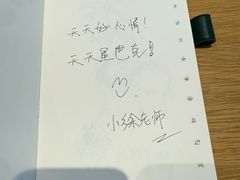 天天好心情！
天天星巴克！
小徐老师